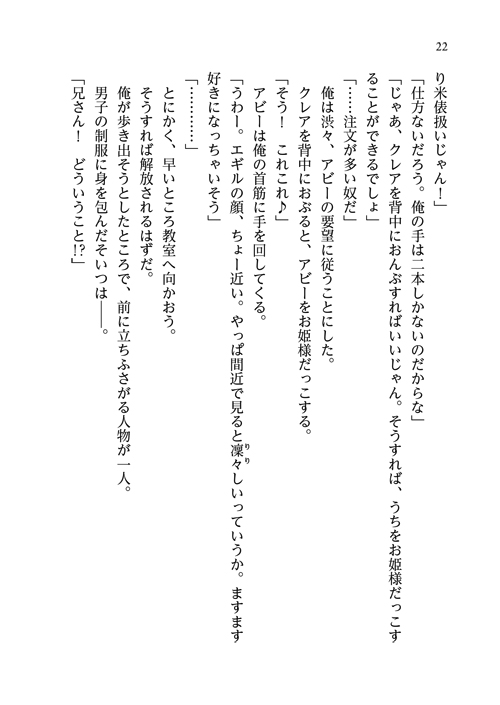 22
り米俵扱いじゃん！」
「仕方ないだろう。俺の手は二本しかないのだからな」
「じゃあ、クレアを背中におんぶすればいいじゃん。そうすれば、うちをお姫様だっこす
ることができるでしょ」
「……注文が多い奴だ」
俺は渋々、アビーの要望に従うことにした。
クレアを背中におぶると、アビーをお姫様だっこする。
「そう！　これこれ♪」
アビーは俺の首筋に手を回してくる。
「うわー。エギルの顔、ちょー近い。やっぱ間近で見ると凜々しいっていうか。ますます
りり
好きになっちゃいそう」
「…………」
とにかく、早いところ教室へ向かおう。
そうすれば解放されるはずだ。
俺が歩き出そうとしたところで、前に立ちふさがる人物が一人。
男子の制服に身を包んだそいつは――。
「兄さん！　どういうこと!?」